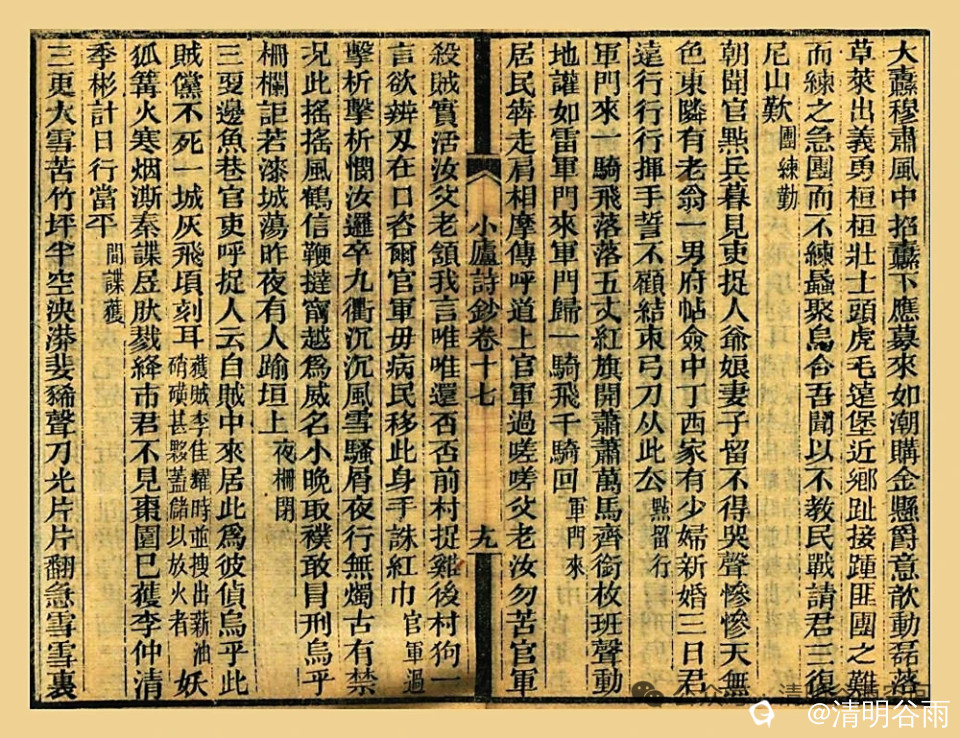 大纛穆肅風中招纛下應募來如潮購金懸爵意歆動磊落
草萊出義勇桓桓壯士頭虎毛遠堡近鄉趾接踵匪團之難
而練之急團而不練蟲聚烏合吾聞以不教民戰請君三復
尼山歎 團練勤
朝聞官點兵暮見吏捉人爺娘妻子留不得哭聲慘慘天無
色東隣有老翁一男府帖僉中丁西家有少婦新婚三日君
遠行行行揮手誓不顧結束弓刀从此去 點留行
軍門來一騎飛落落五丈紅旗開蕭蕭萬馬齊銜枚班聲動
地讙如雷軍門來軍門歸一騎飛千騎回 軍門來
居民犇走肩相摩傳呼道上官軍過嗟嗟父老汝勿苦官軍
殺賊實活汝父老頷我言唯唯還否否前村捉雞後村狗一
言欲辨刄在口咨爾官軍毋病民移此身手誅紅巾 官軍過
小廬詩鈔卷十七 九
擊柝擊柝憫汝邏卒九衢沉沉風雪騷屑夜行無燭古有禁
况此搖搖風鶴信鞭撻甯越爲威名小晚取襆敢冒刑烏乎
柵欄詎若漆城蕩昨夜有人踰垣上 夜柵閉
三叓邊魚巷官吏呼捉人云自賊中來居此爲彼偵烏乎此
賊儻不死一城灰飛頃刻耳 獲賊李佳耀時並搜出薪油硝磺甚夥蓋儲以放火者 妖
狐篝火寒烟澌秦諜㞐肰戮絳市君不見棗園巳獲李仲清
季彬計日行當平 間諜獲
三更大雪苦竹坪半空泱漭斐豨聲刀光片片翻急雪雪裏
公众号
@清明谷雨